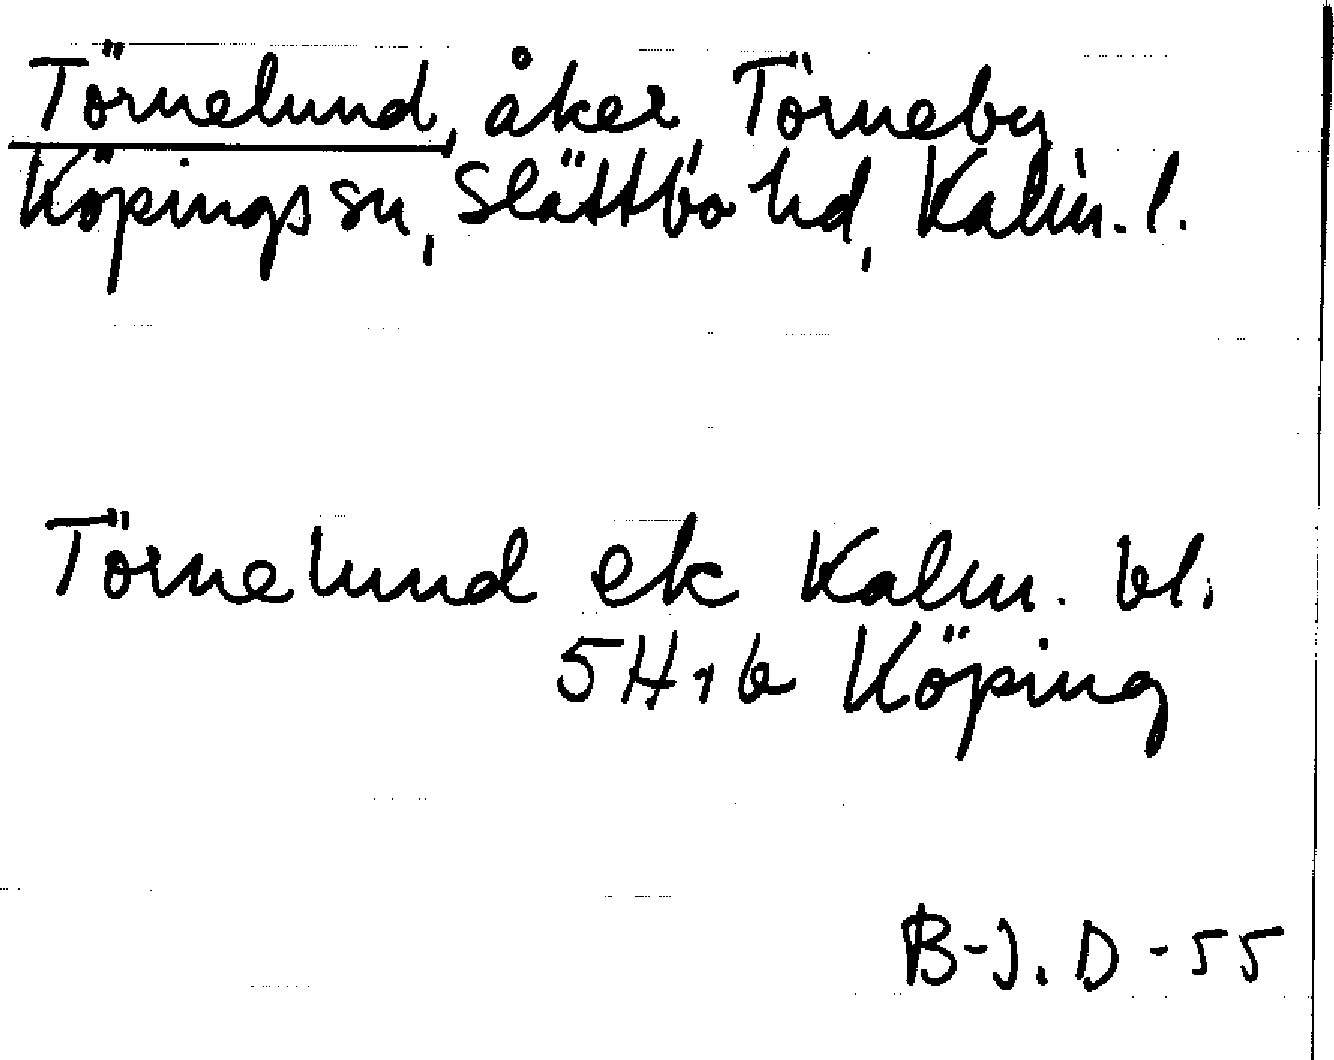 Törnelund, åker, Törneby
Köpings sn, Slättbo hd, Kalm. l.
Törnelund ek Kalm. bl.
5H1b Köping
B-J. D -55